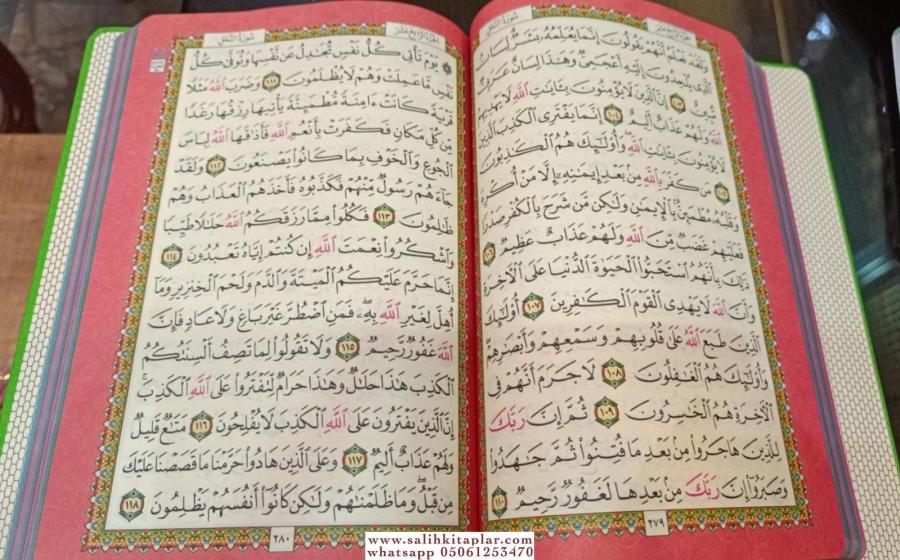 سُورَةُ النَّحْلِ الجُزْءُ الرَّابِعَ عَشَرَ
وَلَقَدْ نَعْلَمُ أَنَّهُمْ يَقُولُونَ إِنَّمَا يُعَلِّمُهُۥ بَشَرٌ لِّسَانُ
ٱلَّذِى يُلْحِدُونَ إِلَيْهِ أَعْجَمِىٌّ وَهَٰذَا لِسَانٌ عَرَبِىٌّ
مُّبِينٌ ١٠٣ إِنَّ ٱلَّذِينَ لَا يُؤْمِنُونَ بِـَٔايَٰتِ ٱللَّهِ لَا يَهْدِيهِمُ
ٱللَّهُ وَلَهُمْ عَذَابٌ أَلِيمٌ ١٠٤ إِنَّمَا يَفْتَرِى ٱلْكَذِبَ ٱلَّذِينَ
لَا يُؤْمِنُونَ بِـَٔايَٰتِ ٱللَّهِ وَأُو۟لَٰٓئِكَ هُمُ ٱلْكَٰذِبُونَ
١٠٥ مَن كَفَرَ بِٱللَّهِ مِنۢ بَعْدِ إِيمَٰنِهِۦٓ إِلَّا مَنْ أُكْرِهَ
وَقَلْبُهُۥ مُطْمَئِنٌّۢ بِٱلْإِيمَٰنِ وَلَٰكِن مَّن شَرَحَ بِٱلْكُفْرِ صَدْرًا
فَعَلَيْهِمْ غَضَبٌ مِّنَ ٱللَّهِ وَلَهُمْ عَذَابٌ عَظِيمٌ ١٠٦
ذَٰلِكَ بِأَنَّهُمُ ٱسْتَحَبُّوا۟ ٱلْحَيَوٰةَ ٱلدُّنْيَا عَلَى ٱلْءَاخِرَةِ
وَأَنَّ ٱللَّهَ لَا يَهْدِى ٱلْقَوْمَ ٱلْكَٰفِرِينَ ١٠٧ أُو۟لَٰٓئِكَ
ٱلَّذِينَ طَبَعَ ٱللَّهُ عَلَىٰ قُلُوبِهِمْ وَسَمْعِهِمْ وَأَبْصَٰرِهِمْ
وَأُو۟لَٰٓئِكَ هُمُ ٱلْغَٰفِلُونَ ١٠٨ لَا جَرَمَ أَنَّهُمْ فِى
ٱلْءَاخِرَةِ هُمُ ٱلْخَٰسِرُونَ ١٠٩ ثُمَّ إِنَّ رَبَّكَ
لِلَّذِينَ هَاجَرُوا۟ مِنۢ بَعْدِ مَا فُتِنُوا۟ ثُمَّ جَٰهَدُوا۟
وَصَبَرُوٓا۟ إِنَّ رَبَّكَ مِنۢ بَعْدِهَا لَغَفُورٌ رَّحِيمٌ ١١٠
٢٧٩
الجُزْءُ الرَّابِعَ عَشَرَ سُورَةُ النَّحْلِ
يَوْمَ تَأْتِى كُلُّ نَفْسٍ تُجَٰدِلُ عَن نَّفْسِهَا وَتُوَفَّىٰ كُلُّ
نَفْسٍ مَّا عَمِلَتْ وَهُمْ لَا يُظْلَمُونَ ١١١ وَضَرَبَ ٱللَّهُ مَثَلًا
قَرْيَةً كَانَتْ ءَامِنَةً مُّطْمَئِنَّةً يَأْتِيهَا رِزْقُهَا رَغَدًا
مِّن كُلِّ مَكَانٍ فَكَفَرَتْ بِأَنْعُمِ ٱللَّهِ فَأَذَٰقَهَا ٱللَّهُ لِبَاسَ
ٱلْجُوعِ وَٱلْخَوْفِ بِمَا كَانُوا۟ يَصْنَعُونَ ١١٢ وَلَقَدْ
جَآءَهُمْ رَسُولٌ مِّنْهُمْ فَكَذَّبُوهُ فَأَخَذَهُمُ ٱلْعَذَابُ وَهُمْ
ظَٰلِمُونَ ١١٣ فَكُلُوا۟ مِمَّا رَزَقَكُمُ ٱللَّهُ حَلَٰلًا طَيِّبًا
وَٱشْكُرُوا۟ نِعْمَتَ ٱللَّهِ إِن كُنتُمْ إِيَّاهُ تَعْبُدُونَ ١١٤
إِنَّمَا حَرَّمَ عَلَيْكُمُ ٱلْمَيْتَةَ وَٱلدَّمَ وَلَحْمَ ٱلْخِنزِيرِ وَمَآ
أُهِلَّ لِغَيْرِ ٱللَّهِ بِهِۦ فَمَنِ ٱضْطُرَّ غَيْرَ بَاغٍ وَلَا عَادٍ فَإِنَّ
ٱللَّهَ غَفُورٌ رَّحِيمٌ ١١٥ وَلَا تَقُولُوا۟ لِمَا تَصِفُ أَلْسِنَتُكُمُ
ٱلْكَذِبَ هَٰذَا حَلَٰلٌ وَهَٰذَا حَرَامٌ لِّتَفْتَرُوا۟ عَلَى ٱللَّهِ ٱلْكَذِبَ
إِنَّ ٱلَّذِينَ يَفْتَرُونَ عَلَى ٱللَّهِ ٱلْكَذِبَ لَا يُفْلِحُونَ ١١٦ مَتَٰعٌ قَلِيلٌ
وَلَهُمْ عَذَابٌ أَلِيمٌ ١١٧ وَعَلَى ٱلَّذِينَ هَادُوا۟ حَرَّمْنَا مَا قَصَصْنَا عَلَيْكَ
مِن قَبْلُ وَمَا ظَلَمْنَٰهُمْ وَلَٰكِن كَانُوٓا۟ أَنفُسَهُمْ يَظْلِمُونَ ١١٨
٢٨٠
www.salihkitaplar.com
whatsapp 05061253470